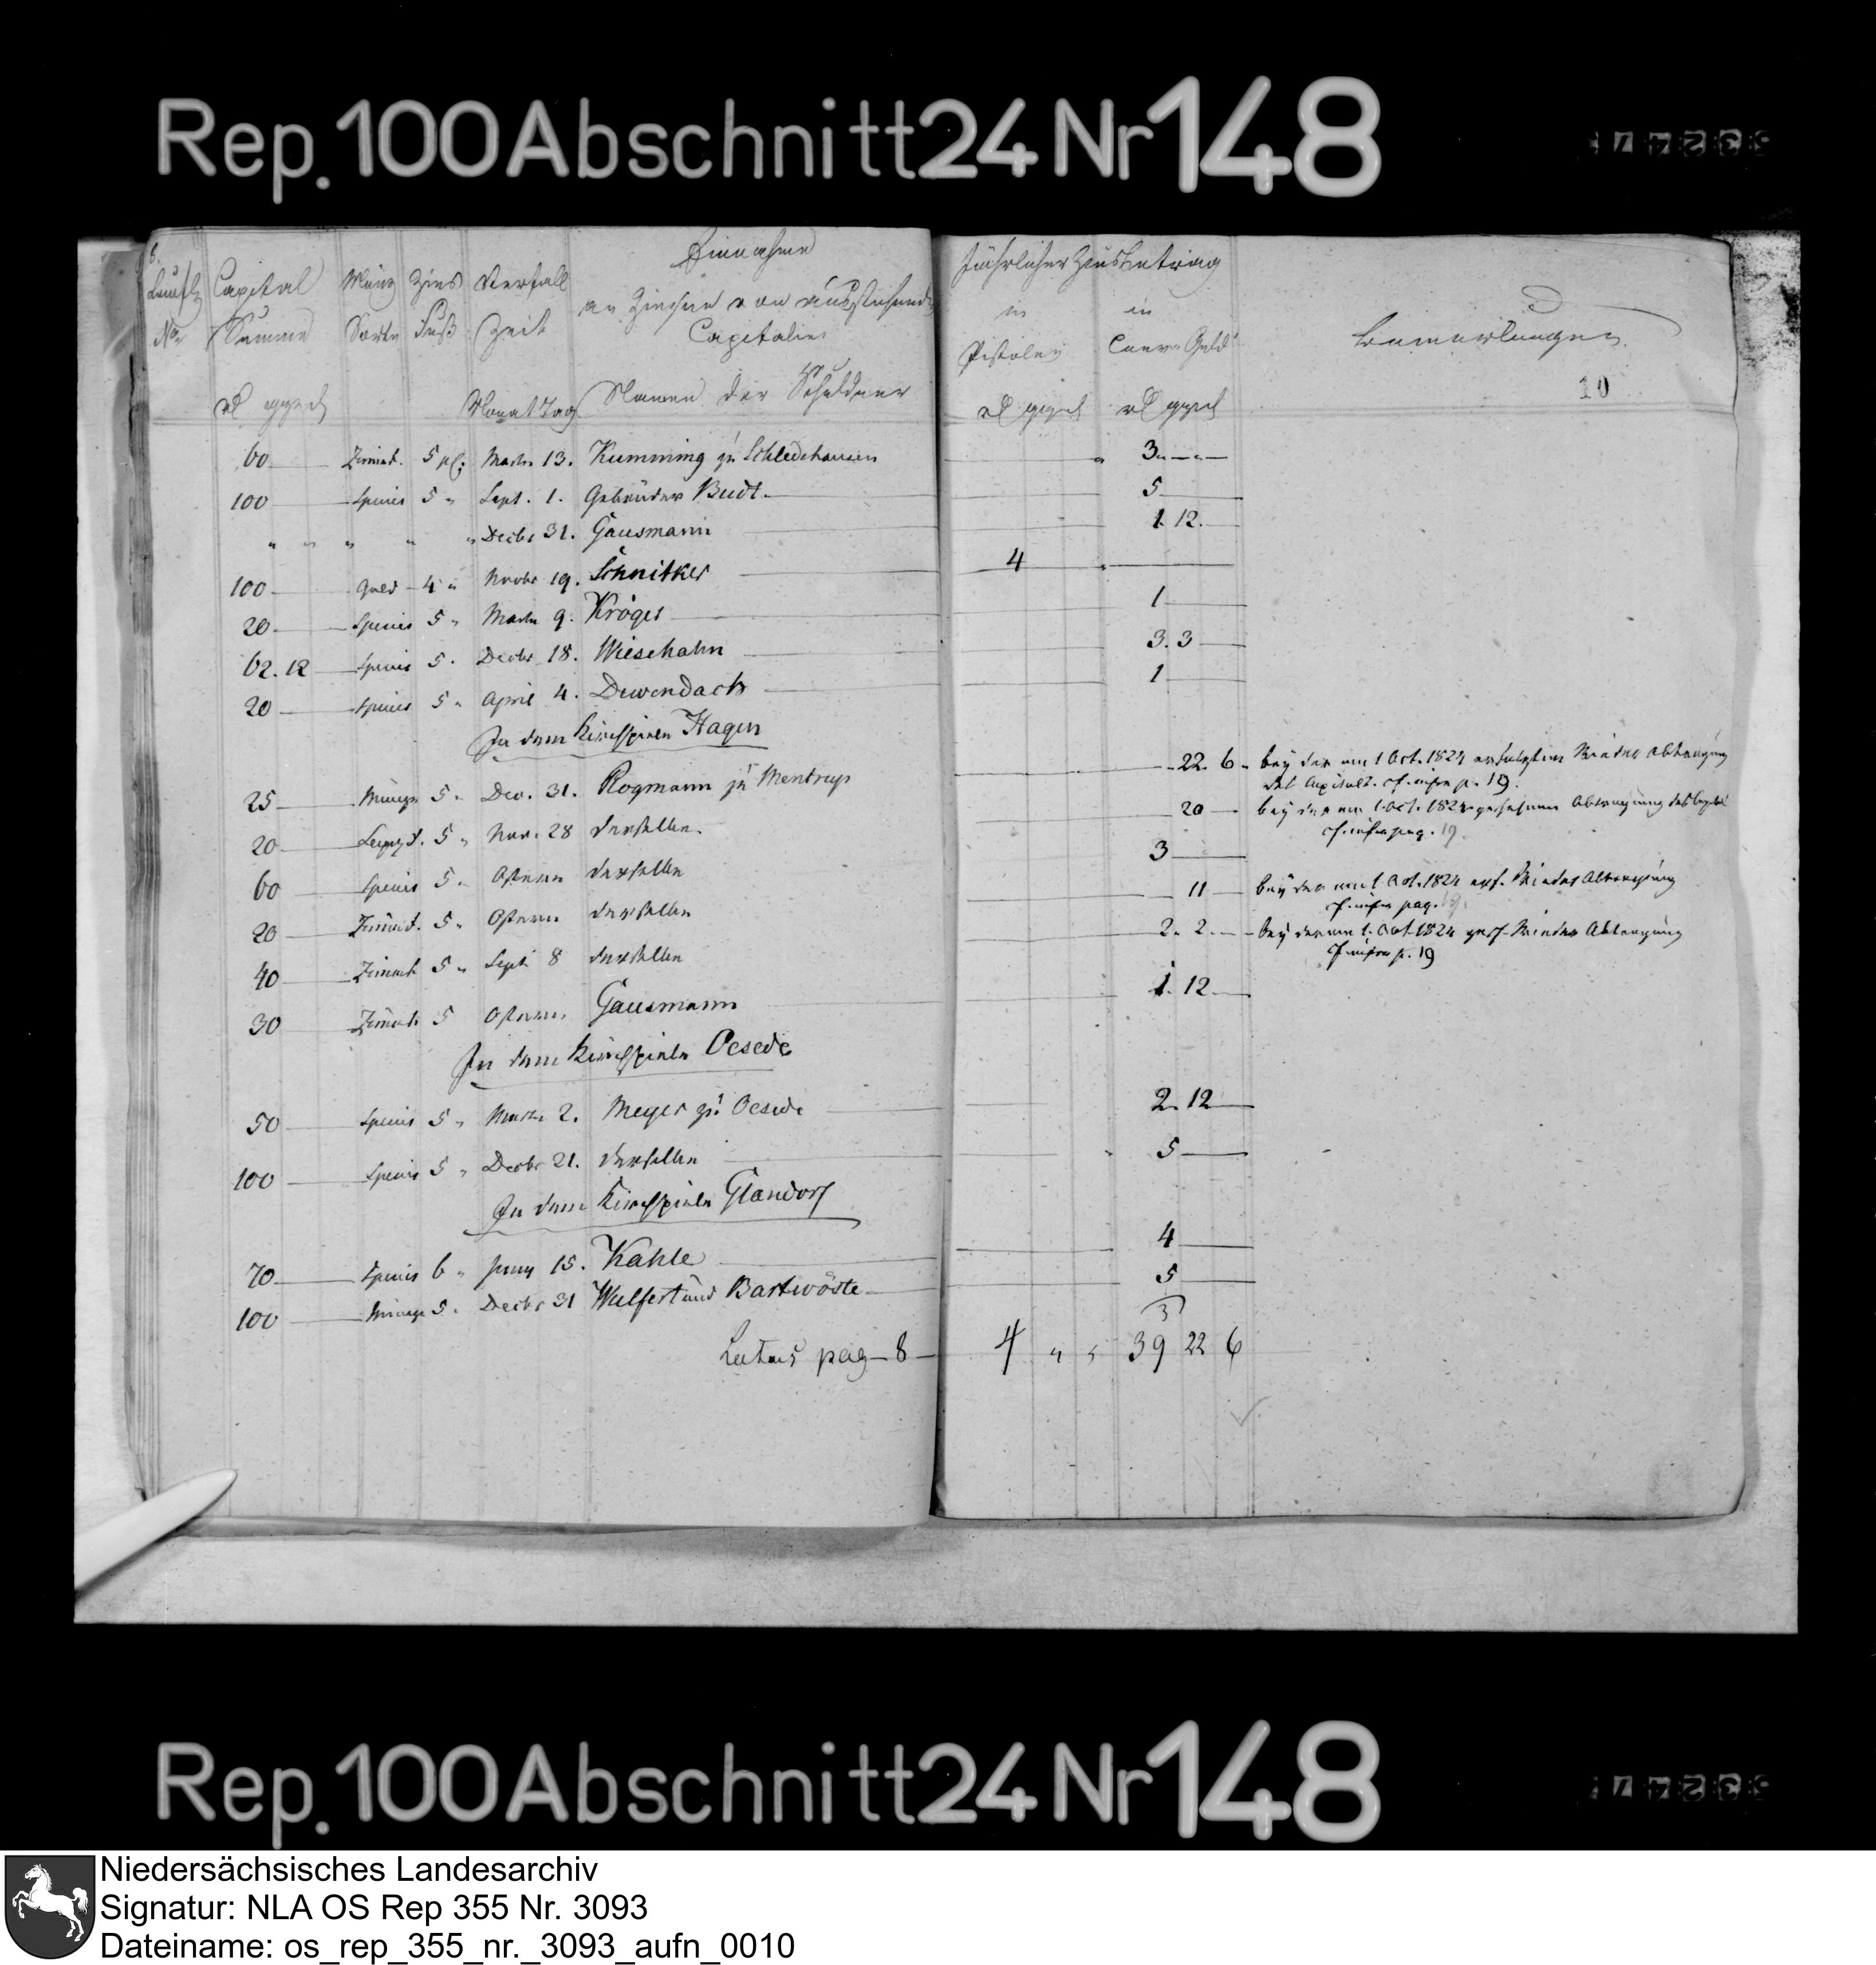 Rep. 100 Abschnitt 24 Nr 148
8.
Einnahme
an Zinsen von ausstehenden
Capitalien
Laufd. Nr
Capital Summe
Münz Sorte
Zins Fuß
Verfall Zeit
Monat Tag
Namen der Schuldner
Jährlicher Zinsbetrag
in Pistolen
in Conv. Geld
Bemerkungen
10
60 5 pC. Martz 13. Kumming zu Schledehausen 3
100 Species 5 " Sept. 1. Gebrüder Budt 5
" " " " " Decbr 31. Gausmann 1. 12.
100 Gold 4 " Novbr 19. Schnitker 4
20 Species 5 " Martz 9. Kröger 1
62. 12 Species 5. Decbr 18. Wiesehahn 3. 3
20 Species 5 " April 4. Duvendach 1
In dem Kirchspiele Hagen
25 Münze 5. Dec. 31. Rogmann zu Mentrup 22. 6 bey der am 1 Oct. 1824 erfolgten Wieder Ablegung
des Capitals. cf. infra p. 19.
20 5 " Nov. 28 derselbe. 20 bey der am 1. Oct. 1824 geschehenen Ablegung des Capitals
cf. infra pag. 19.
60 Species 5. Ostern derselbe 3
20 5. Ostern derselbe 11 bey der am 1 Oct. 1824 erf. Wieder Ablegung
cf. infra pag. 19.
40 5 " Sept 8 derselbe 2. 2. bey der am 1. Oct 1824 gesch. Wieder Ablegung
cf. infra p. 19
30 5 Ostern Gausmann 1. 12
In dem Kirchspiele Oesede
50 Species 5 " Martz 2. Meyer zu Oesede 2. 12
100 Species 5 " Decbr 21. derselbe 5
In dem Kirchspiele Glandorf
70 Species 6 " 15. Kahle 4
100 Münze 5. Decbr 31 Wulfert und Bartwöste 5
Latus pag 8 4 " " 39 22 6
Rep. 100 Abschnitt 24 Nr 148
Niedersächsisches Landesarchiv
Signatur: NLA OS Rep 355 Nr. 3093
Dateiname: os_rep_355_nr._3093_aufn_0010